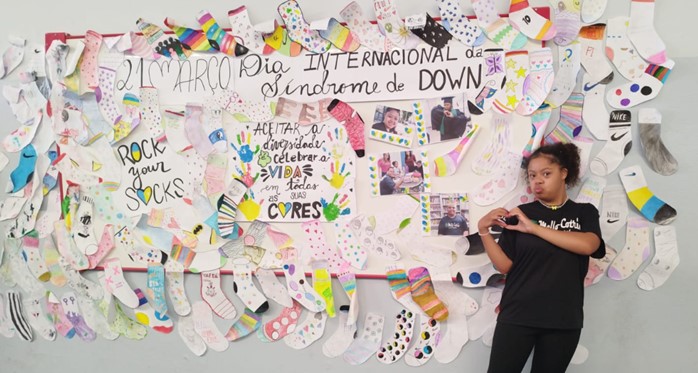 21 MARÇO Dia INTERNACIONAL da
Síndrome de DOWN
ROCK
your
SOCKS
ACEITAR a
diversidade
é celebrar a
VIDA
em todas
as suas
CORES
NIKE